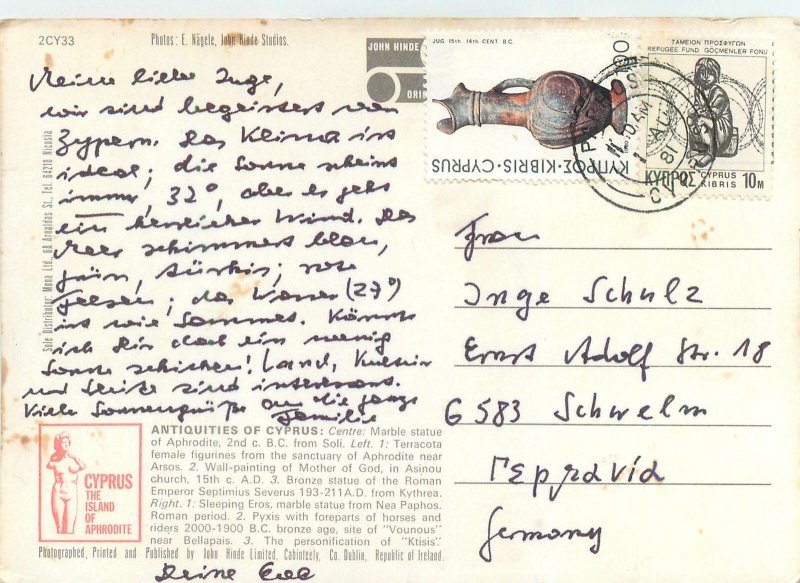 2CY33
Photos: E. Nägele, John Hinde Studios.
JOHN HINDE
ORIGINAL
Sole Distributor Mona Ltd. 6A Arnaidas St. Tel. 64218 Nicosia
Meine liebe Inge,
wir sind begeistert von
Zypern. Das Klima ist
ideal; die Sonne scheint
immer, 32°, aber es geht
ein herrlicher Wind. Das
Meer schimmert blau,
grün, türkis; rote
Felsen; das Wasser (27°)
ist wie Sammet. Könnte
ich Dir doch ein wenig
Sonne schicken! Land, Kultur
und Leute sind interessant.
Viele Sonnengrüße an die ganze
Familie
Deine
JUG 15th - 14th CENT B.C.
ΚΥΠΡΟΣ·KIBRIS·CYPRUS
ΤΑΜΕΙΟΝ ΠΡΟΣΦΥΓΩΝ
REFUGEE FUND GÖÇMENLER FONU
ΚΥΠΡΟΣ CYPRUS KIBRIS 10M
Frau
Inge Schulz
Ernst Adolf Str. 18
G 583 Schwelm
Γερμανία
Germany
CYPRUS
THE
ISLAND
OF
APHRODITE
ANTIQUITIES OF CYPRUS: Centre: Marble statue
of Aphrodite, 2nd c. B.C. from Soli. Left. 1: Terracota
female figurines from the sanctuary of Aphrodite near
Arsos. 2. Wall-painting of Mother of God, in Asinou
church, 15th c. A.D. 3. Bronze statue of the Roman
Emperor Septimius Severus 193-211A.D. from Kythrea.
Right. 1: Sleeping Eros, marble statue from Nea Paphos.
Roman period. 2. Pyxis with foreparts of horses and
riders 2000-1900 B.C. bronze age, site of "Vounous"
near Bellapais. 3. The personification of "Ktisis".
Photographed, Printed and Published by John Hinde Limited, Cabinteely, Co. Dublin, Republic of Ireland.